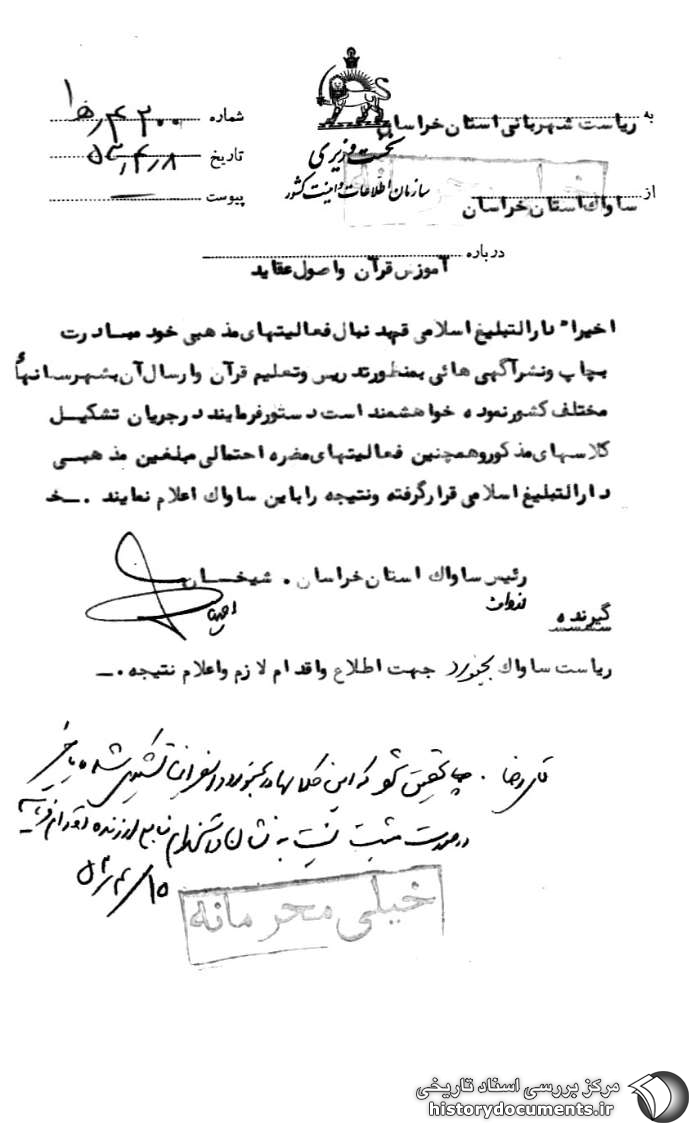 به ریاست شهربانی استان خراسان
از ساواک استان خراسان
نخست وزیری
سازمان اطلاعات و امنیت کشور
شماره
تاریخ ۵۳/۴/۸
پیوست
درباره آموزش قرآن واصول عقاید
اخیرا" دارالتبلیغ اسلامی قم بدنبال فعالیتهای مذهبی خود مبادرت
بچاپ ونشر آگهی هائی بمنظور تدریس وتعلیم قرآن وارسال آن بشهرستانهای
مختلف کشور نموده خواهشمند است دستور فرمایند درجریان تشکیل
کلاسهای مذکور وهمچنین فعالیتهای مضره احتمالی مبلغین مذهبی
دارالتبلیغ اسلامی قرار گرفته ونتیجه را باین ساواک اعلام نمایند .ـ خ
رئیس ساواک استان خراسان . شیخان
گیرنده
ریاست ساواک بجنورد جهت اطلاع واقدام لازم واعلام نتیجه .ـ
تحقیق شود که این کلاسها در بجنورد تشکیل شده یا خیر
در صورت مثبت
۵۳/۴/۱۵
خیلی محرمانه
مرکز بررسی اسناد تاریخی
historydocuments.ir